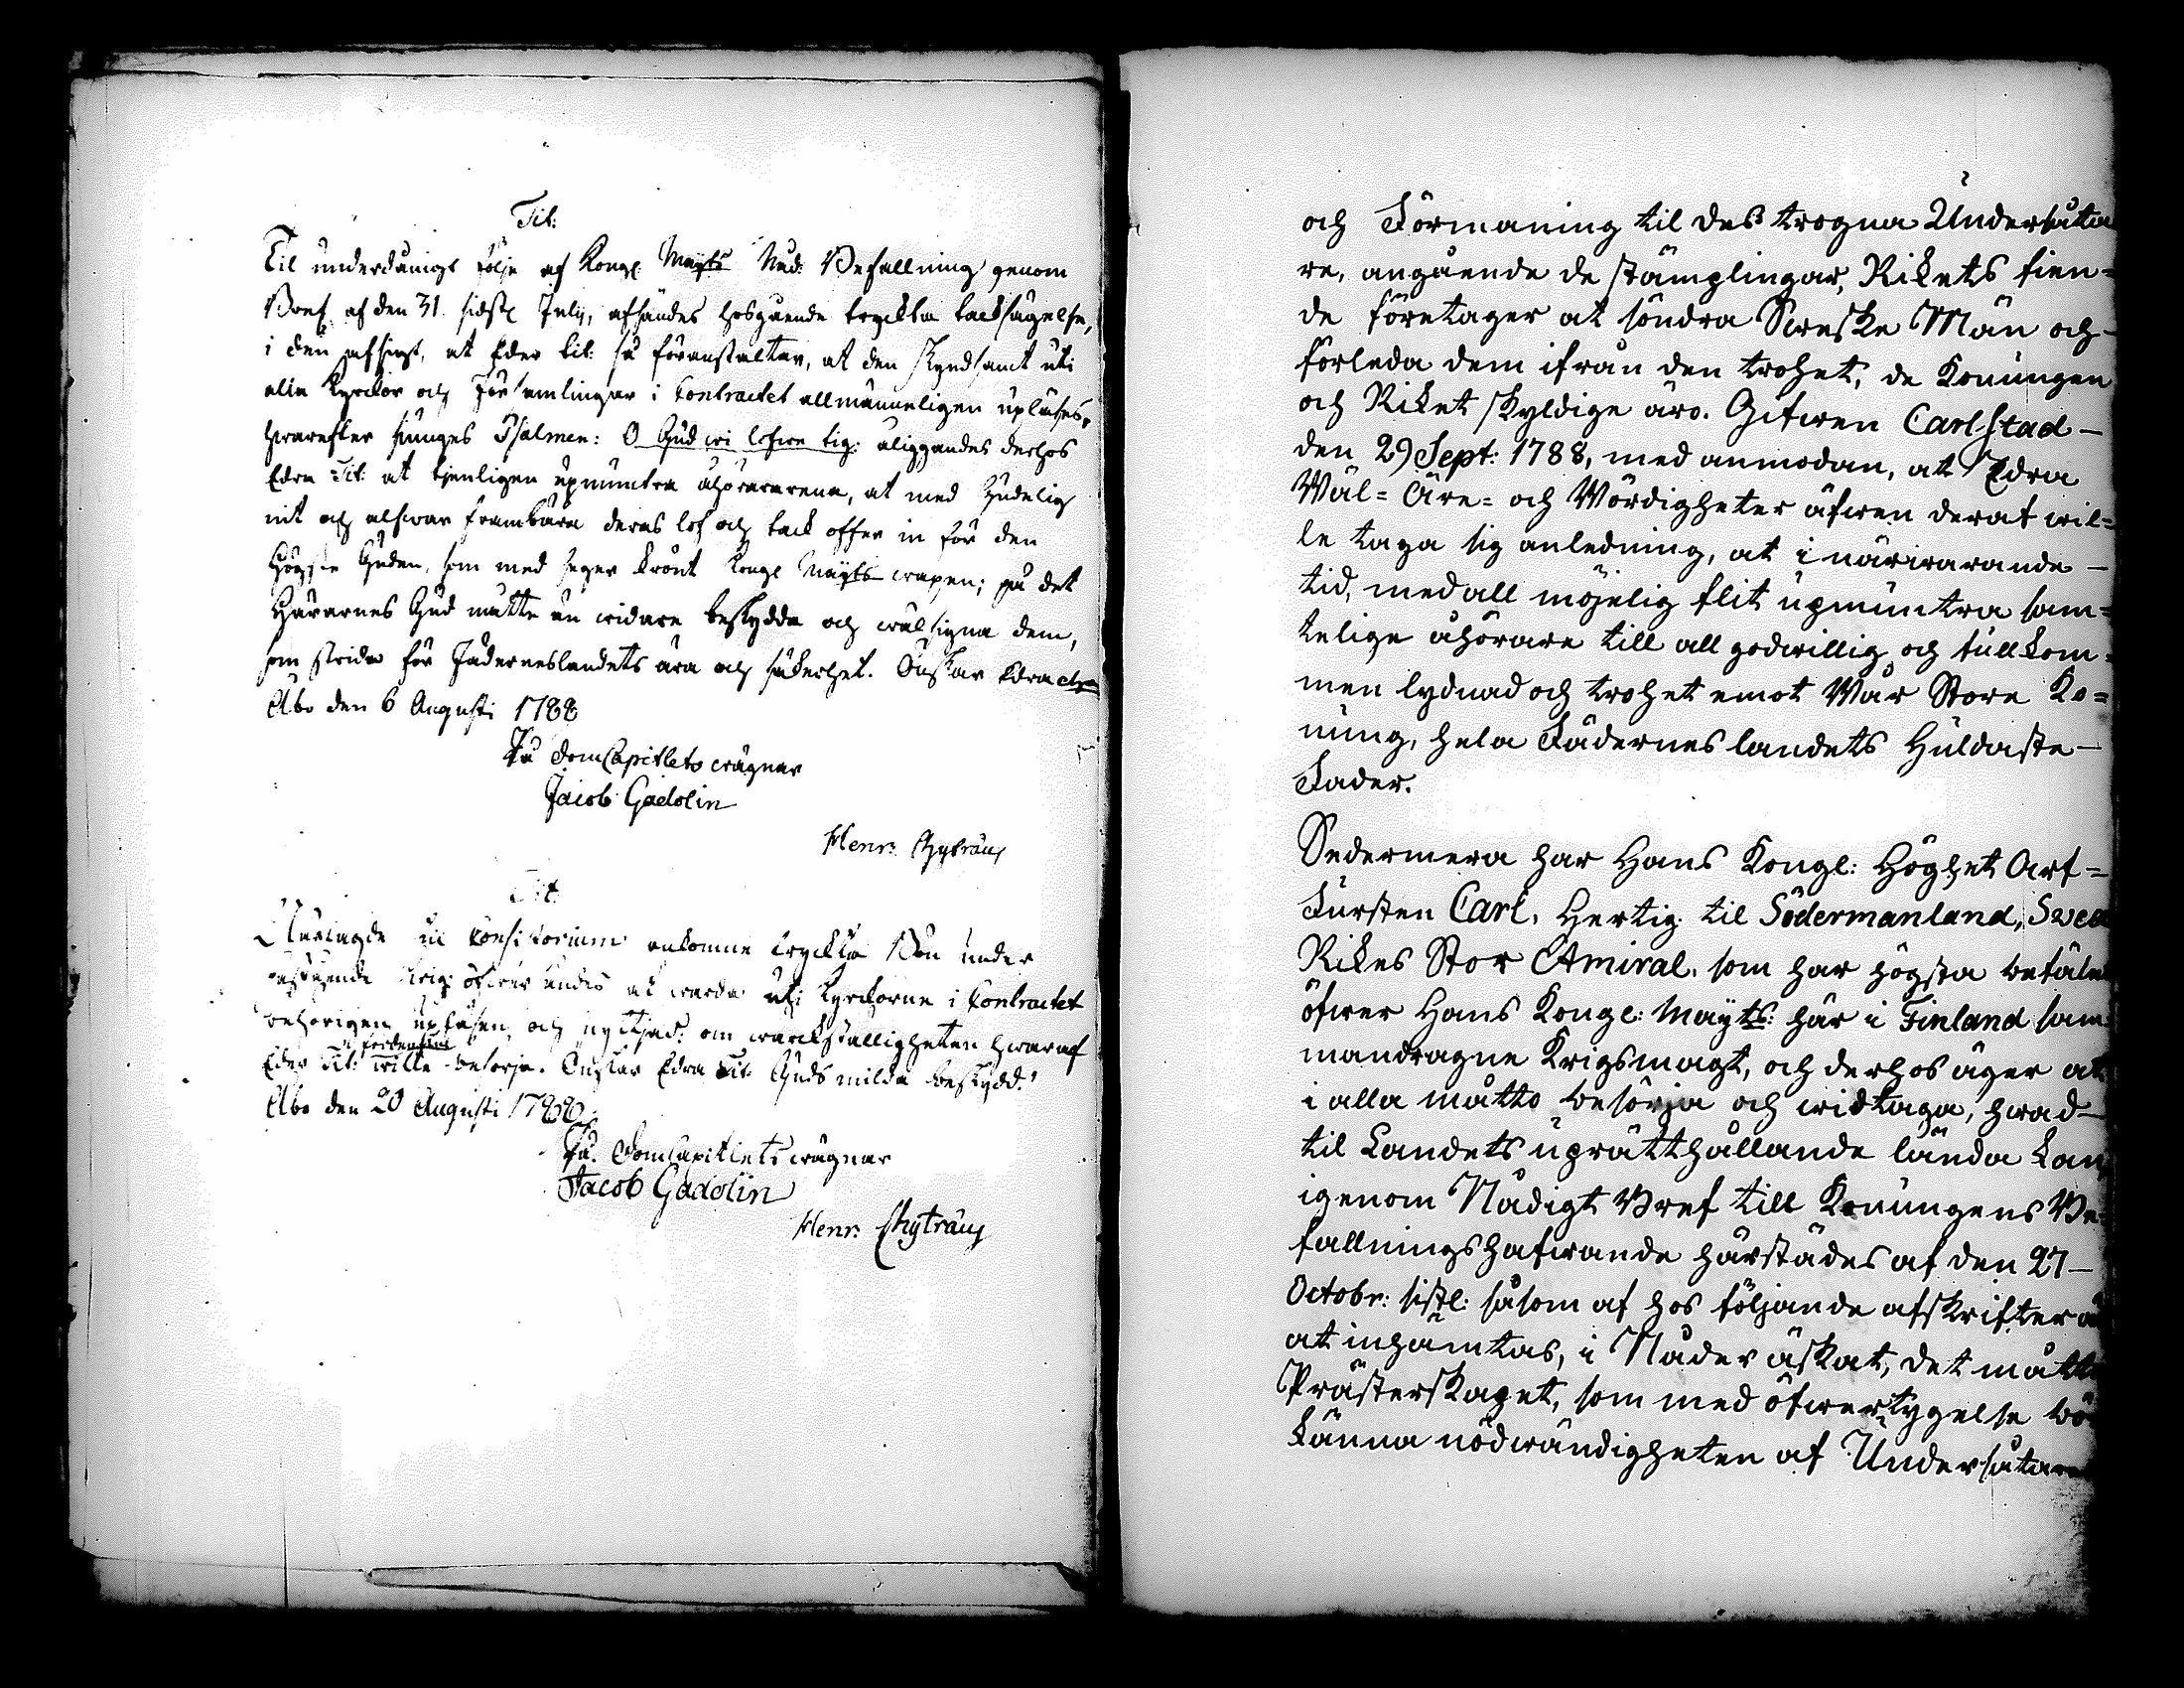 Tit:
Til underdånigt följe af Kongl. Mayts Nåd: Befallning genom
Bref af den 31. sidstl July, afsändes hosgående tryckta tacksägelse,
i den afsigt, at Eder tit: så föranstaltar, at den skyndsamt uti
alla Kyrckor och Församlingar i Contractet allmänneligen upläses,
hvarefter siunges Psalmen: O Gud wi lofwe tig: åliggandes derhos
Edra Tit: at tjenligen upmuntra åhörararena, at med Gudelig
nit och alfwar frambära deras lof och tack offer in för den
Högste Guden, som med seger krönt Kongl Mayts wapen; på det
Härarnes Gud måtte än widare beskydda och wälsigna dem,
som strida för Fäderneslandets ära och säkerhet. Önskar Edra etc
Åbo den 6 Augusti 1788
På DomCapitlets wägnar
Jacob Gadolin
Henr: Chyträus
Tit
uti Consistorium ankomne tryckta Bön under
påstående Krig: öfwersändes at warda uti Kyrckorne i Contractet
behörigen upläsen och nyttjad: om wärckställigheten hwaraf
Eder Tit: wille besörja. Önskar Edra Tit: Guds milda beskydd.
Åbo den 20 Augusti 1788.
På DomCapitlets wägnar
Jacob Gadolin
Henr: Chyträus
och Förmaning til des trogna Undersåta
re, angående de stämplingar, Rikets fien=
de företager at söndra Swenske Män och
förleda dem ifrån den trohet, de Konungen
och Riket skyldige äro. Gifwen Carlstad
den 29 Sept: 1788, med anmodan, at Edra
Wäl= Äre= och Wördigheter äfwen deraf wil=
le taga sig anledning, at i närwarande
tid, med all möjelig flit upmuntra sam=
telige åhörare till all godwillig och fullkom=
men lydnad och trohet emot Wår Store Ko=
nung, hela Fäderneslandets Huldaste
Fader.
Sedermera har Hans Kongl: Höghet Arf=
Fursten Carl, Hertig til Södermanland, Swea
Rikes Stor Amiral, som har högsta befälet
öfwer Hans Kongl: Mayts: här i Finland sam
mandragne Krigsmagt, och derhos äger at
i alla måtto besörja och widtaga, hwad
til Landets uprätthållande lända kan,
igenom Nådigt Bref till Konungens Be=
fallningshafwande härstädes af den 27
Octobr: sistl: såsom af hos följande afskrifter är
at inhämtas, i Nåder äskat, det måtte
Prästerskapet, som med öfwertygelse bör
känna nödwändigheten af Undersåtare